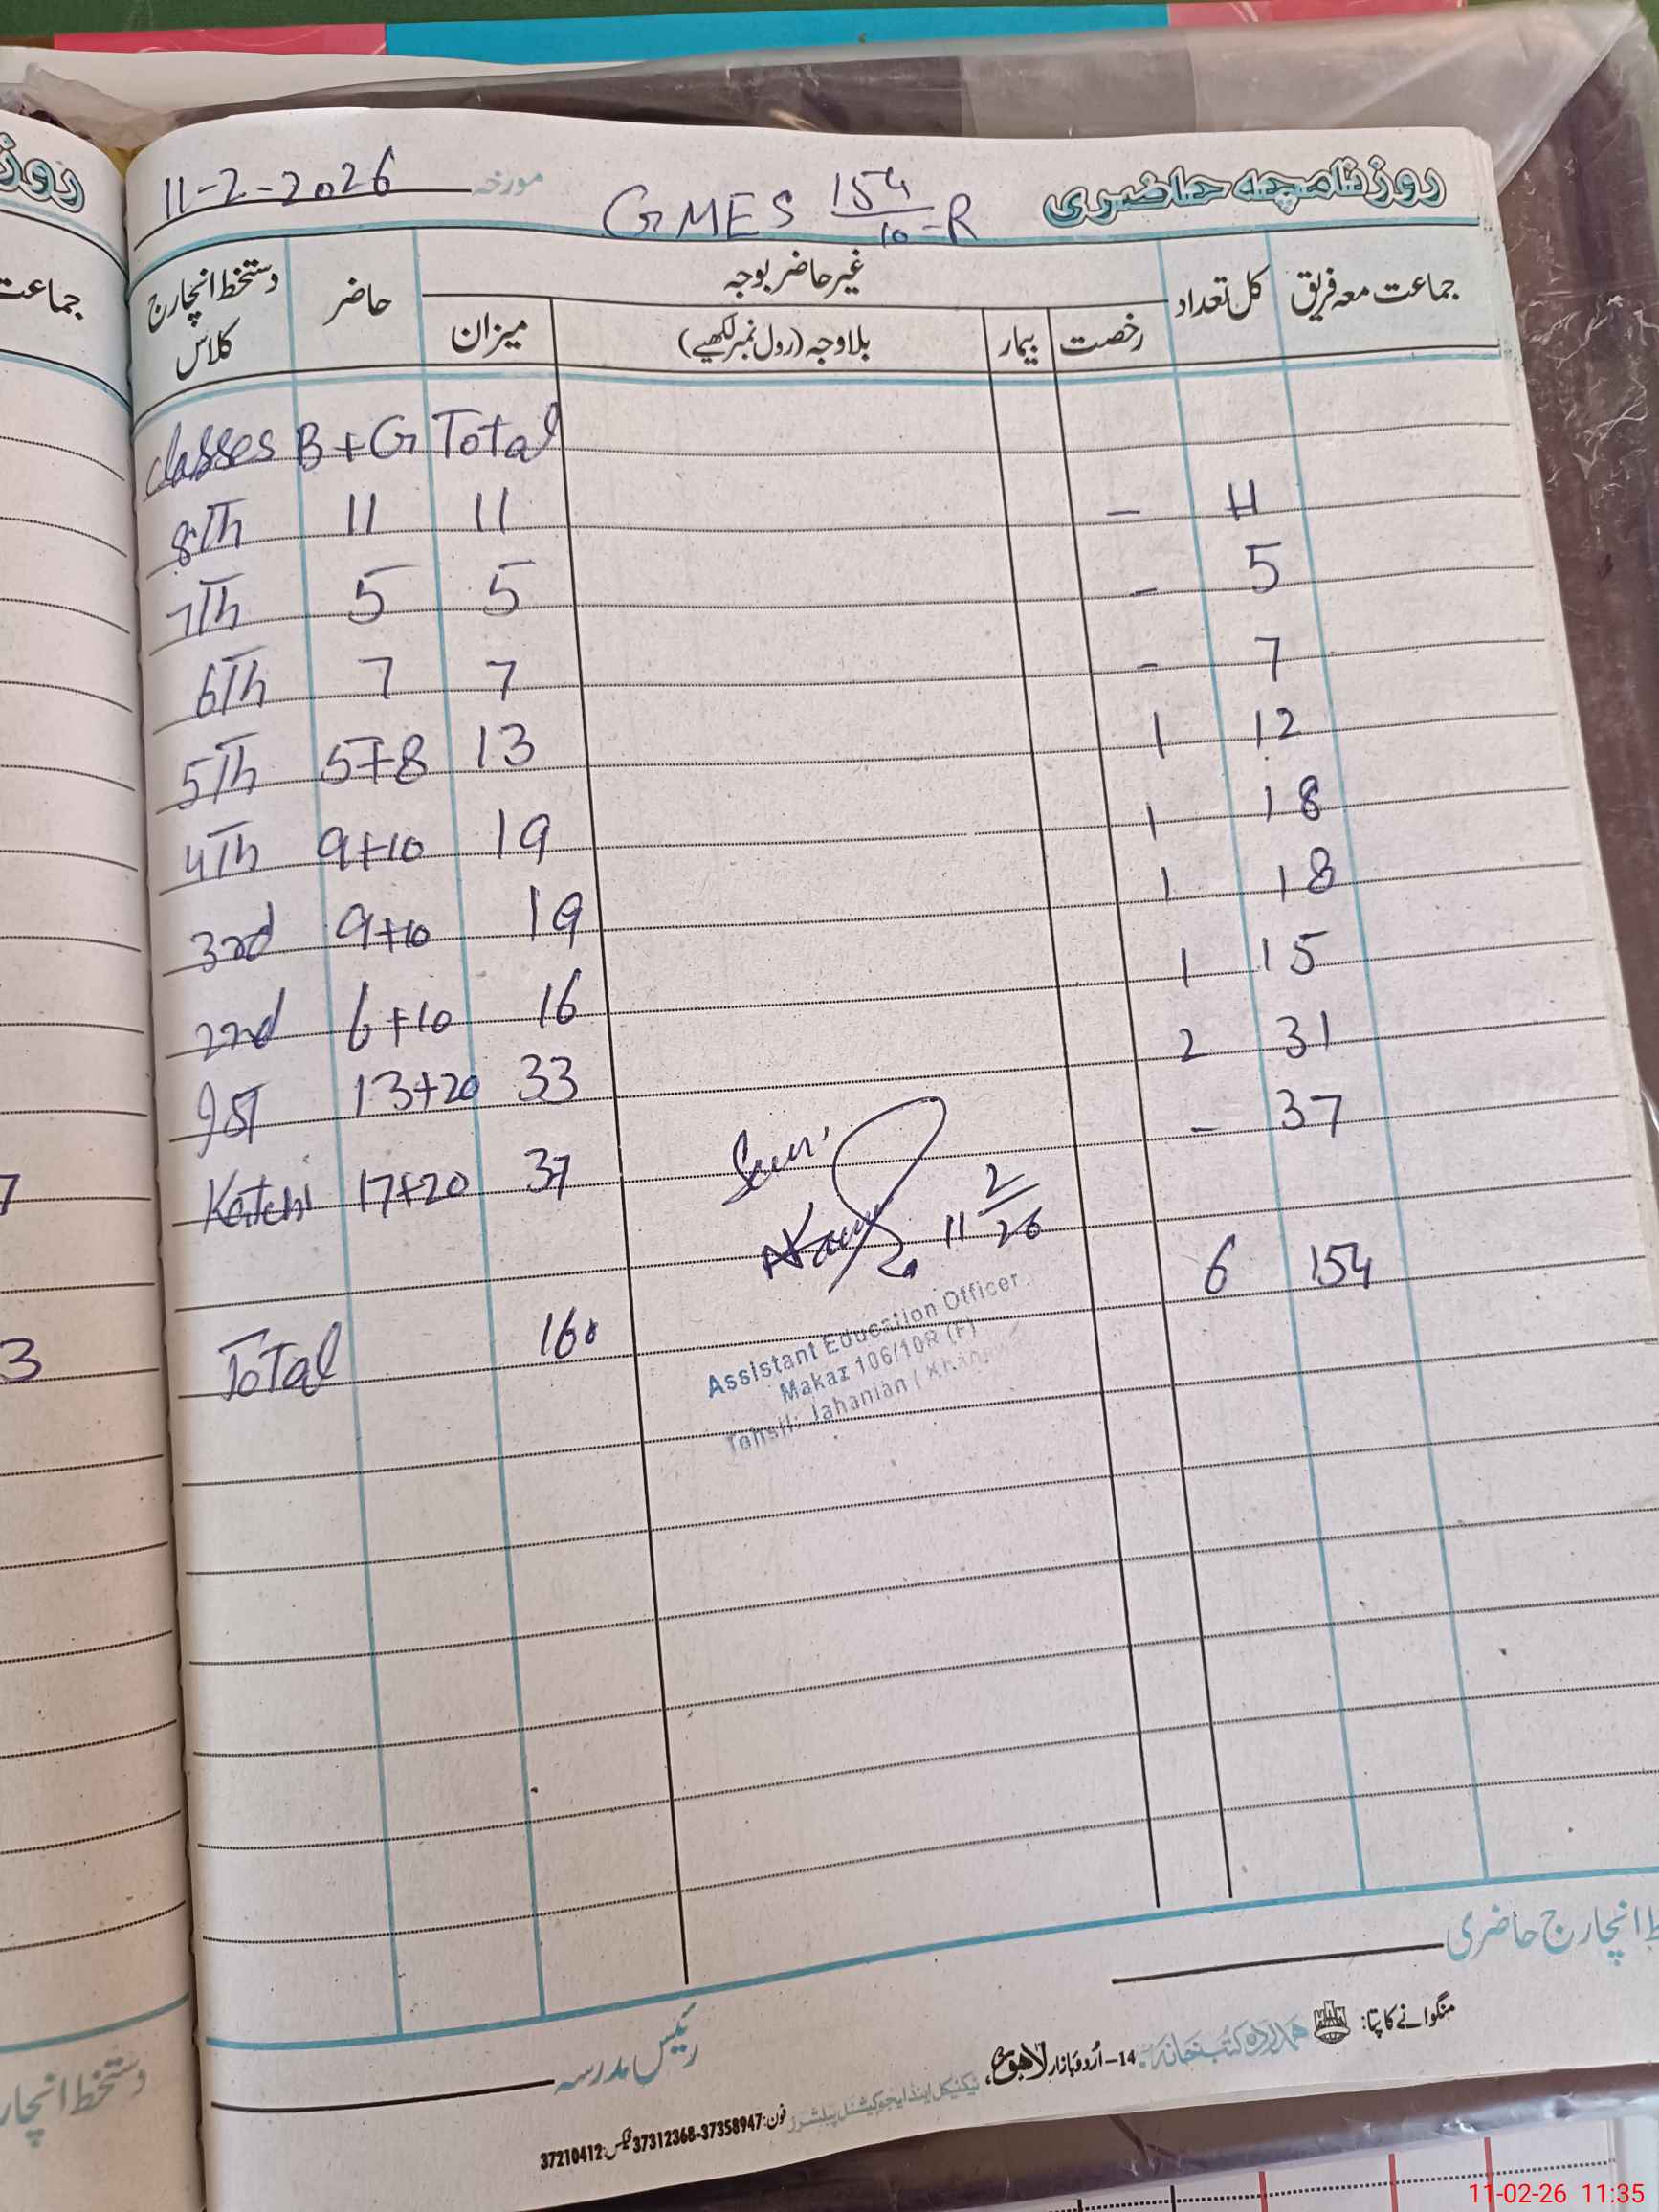 11-2-2026 مورخہ GMES 154/10-R روزنامچہ حاضری
جماعت معہ فریق کل تعداد غیر حاضر بوجہ حاضر دستخط انچارج کلاس
رخصت بیمار بلاوجہ (رول نمبر لکھیے) میزان
classes B+G Total
8Th 11 11 - 11
7Th 5 5 - 5
6Th 7 7 - 7
5Th 5+8 13 1 12
4Th 9+10 19 1 18
3rd 9+10 19 1 18
2nd 6+10 16 1 15
1st 13+20 33 2 31
Katchi 17+20 37 - 37
11 2/26
6 154
Total 160
Assistant Education Officer
Makaz 106/10R (F)
Tehsil: Jahanian
دستخط انچارج حاضری
رئیس مدرسہ
منگوانے کا پتا: ہمدرد کتب خانہ 14-اُردو بازار لاہور،
ٹیکنیکل اینڈ ایجوکیشنل پبلشرز فون: 37358947-37312368 فیکس: 37210412
روز
جماعت
7
3
دستخط انچار
11-02-26 11:35